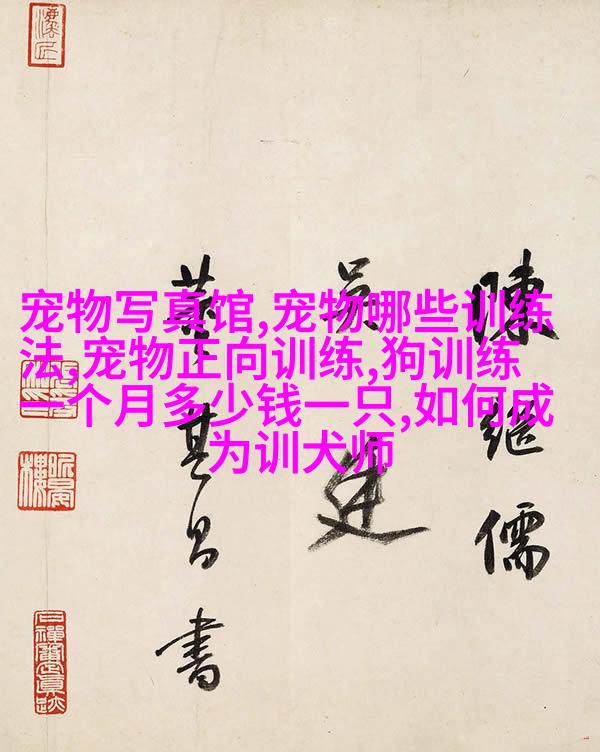 宠物写真馆,宠物哪些训练
法,宠物正向训练,狗训练
一个月多少钱一只,如何成
为训犬师
陳繼儒
吳廷
董其昌書